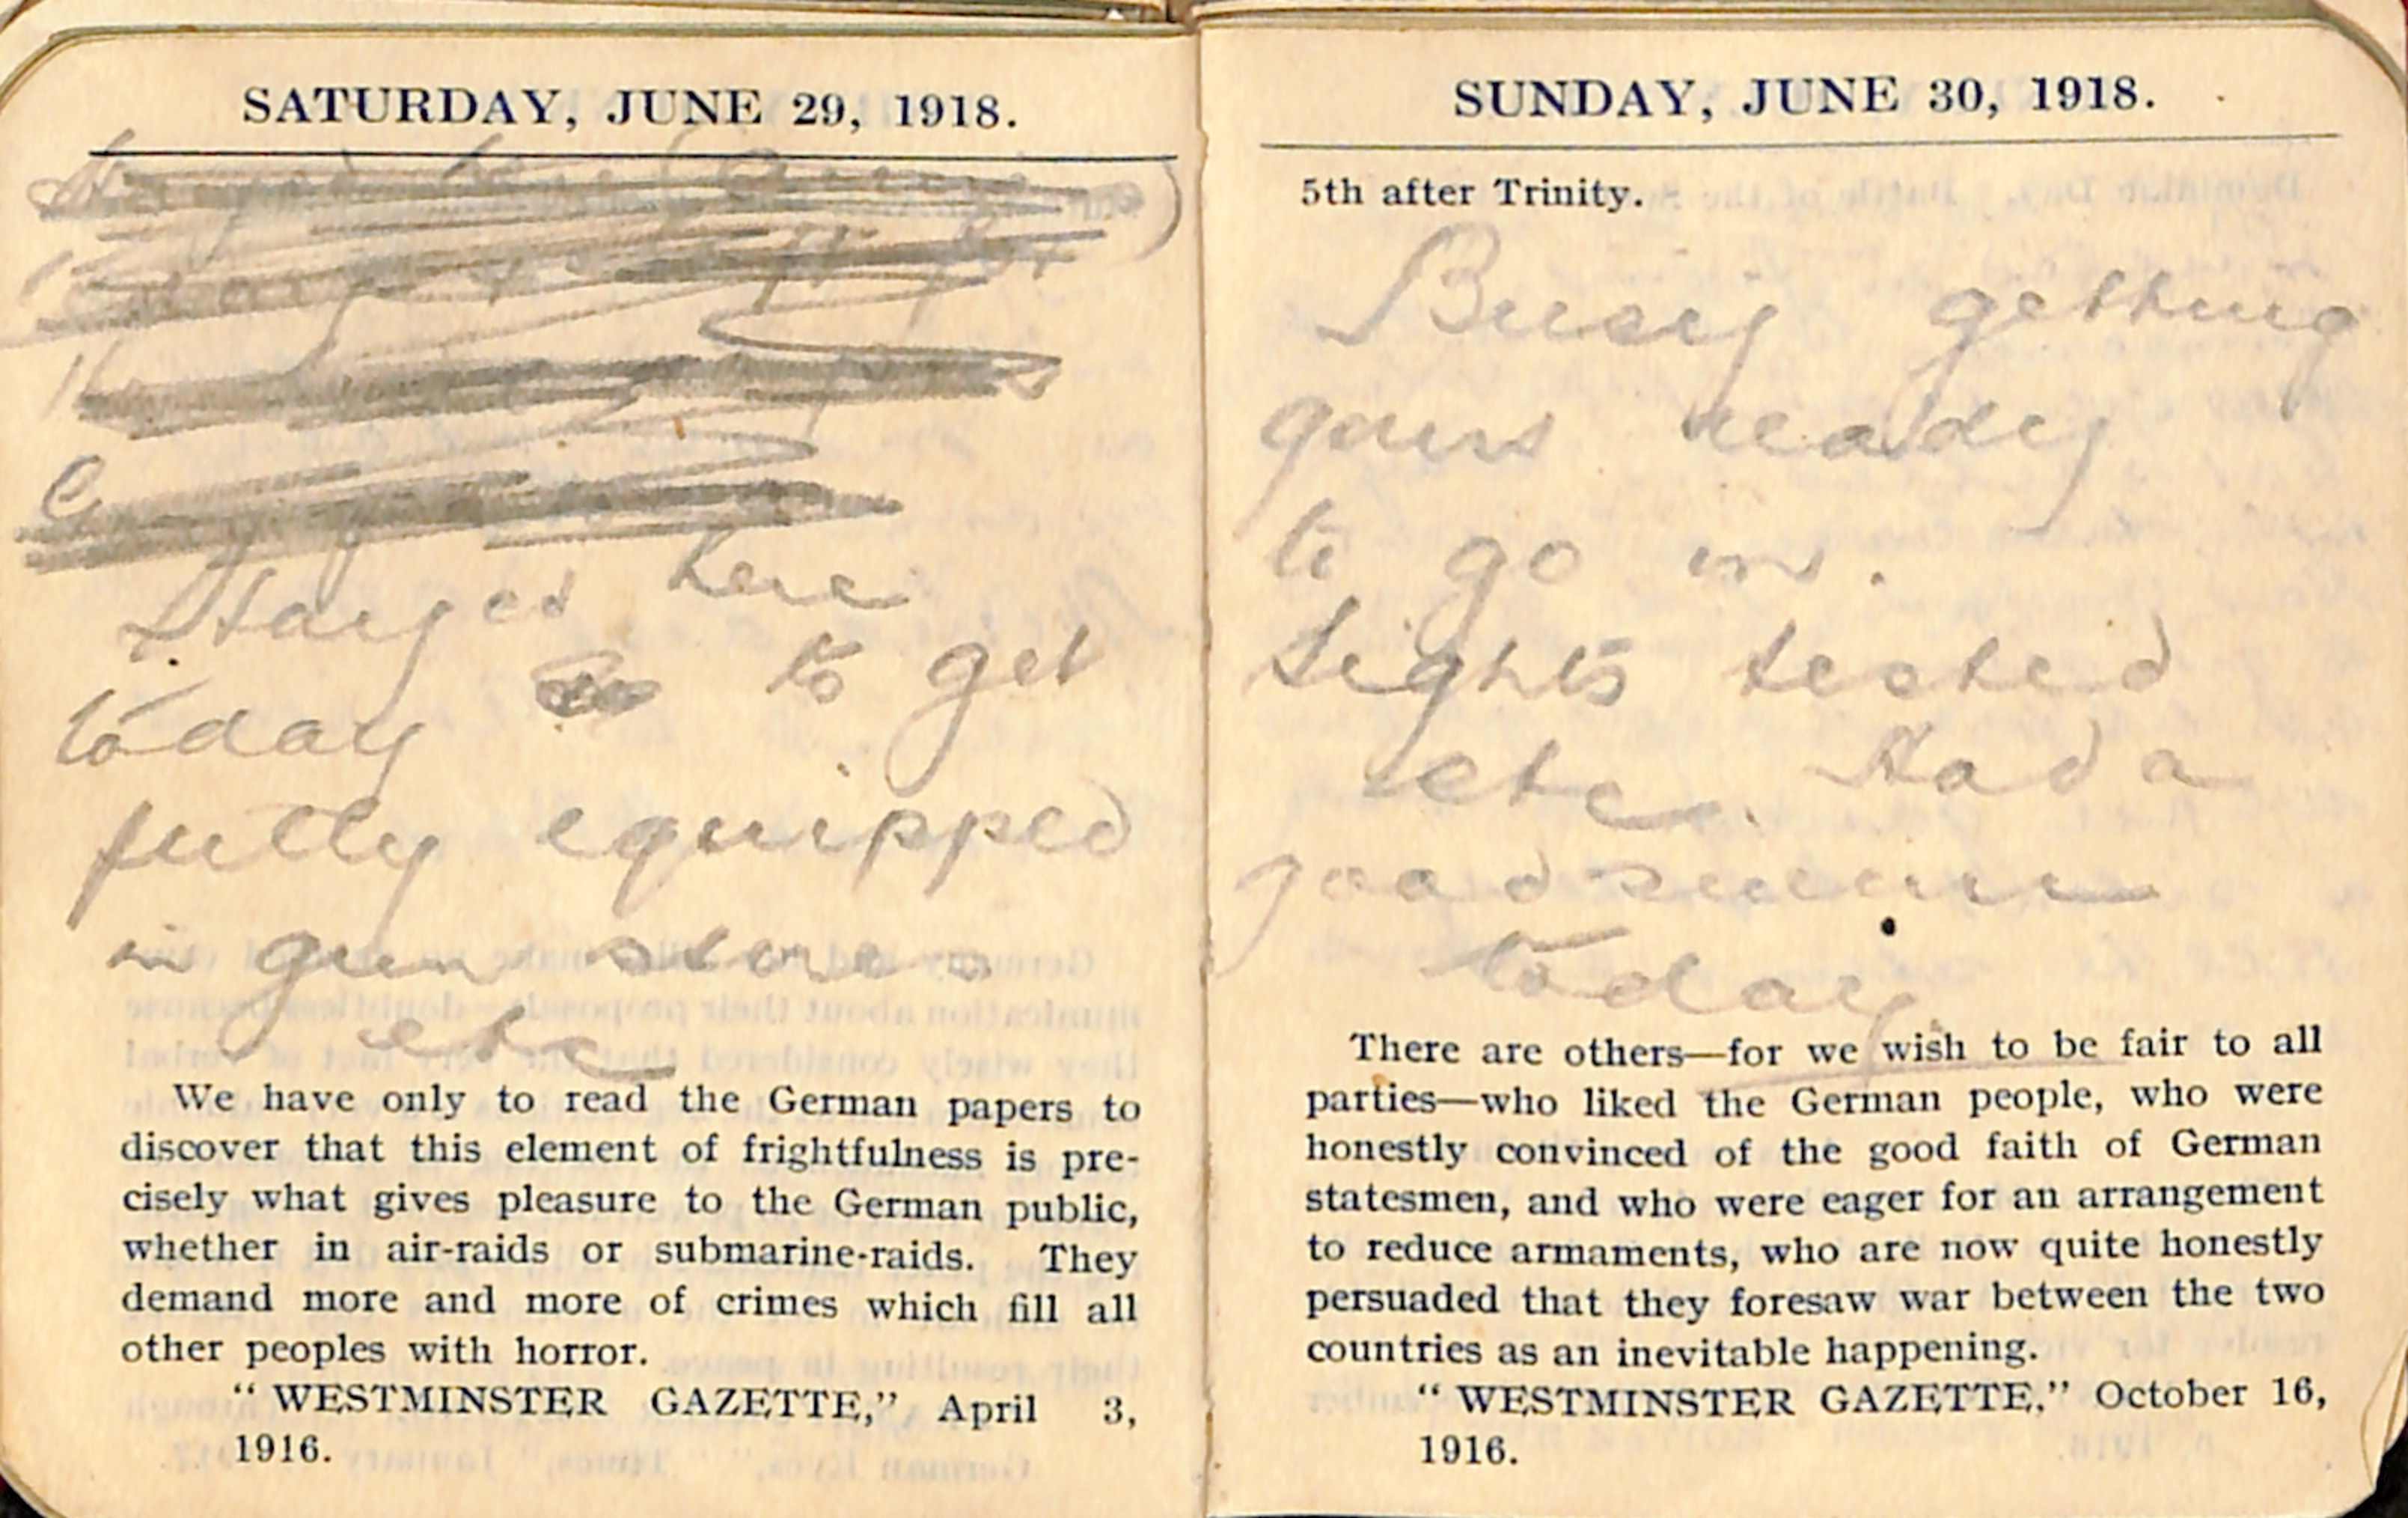 SATURDAY, JUNE 29, 1918.
Stayed here
today to get
fully equipped
in gun stores
etc
We have only to read the German papers to
discover that this element of frightfulness is pre-
cisely what gives pleasure to the German public,
whether in air-raids or submarine-raids. They
demand more and more of crimes which fill all
other peoples with horror.
“ WESTMINSTER GAZETTE,” April 3,
1916.
SUNDAY, JUNE 30, 1918.
5th after Trinity.
Busy getting
guns ready
to go in.
Sights tested
etc. Had a
good swim
today
There are others—for we wish to be fair to all
parties—who liked the German people, who were
honestly convinced of the good faith of German
statesmen, and who were eager for an arrangement
to reduce armaments, who are now quite honestly
persuaded that they foresaw war between the two
countries as an inevitable happening.
“ WESTMINSTER GAZETTE,” October 16,
1916.